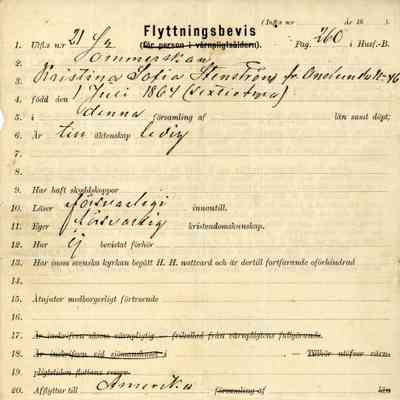 (Infl.s n:r År 18 ).
Flyttningsbevis
1. Utfl.s n:r 21 (för person i värnpligtsåldern). Pag. 260 i Husf.-B.
2.
3. Kristina Sofia Stenström
4. född den 1 Juli 1864 (sextiofyra)
5. i denna församling af län samt döpt;
6. Är till äktenskap ledig
7.
8.
9. Har haft skyddskoppor
10. Läser försvarligt innantill.
11. Eger försvarlig kristendomskunskap.
12. Har ej bevistat förhör
13. Har inom svenska kyrkan begått H. H. nattvard och är dertill fortfarande oförhindrad
14.
15. Åtnjuter medborgerligt förtroende
16.
17. Är inskrifven såsom värnpligtig — frikallad från värnpligtens fullgörande.
18. Är inskrifven vid sjömanshuset i Tillhör utöfver värn-
19. pligtstiden flottans reserv.
20. Afflyttar till Amerika församling af län